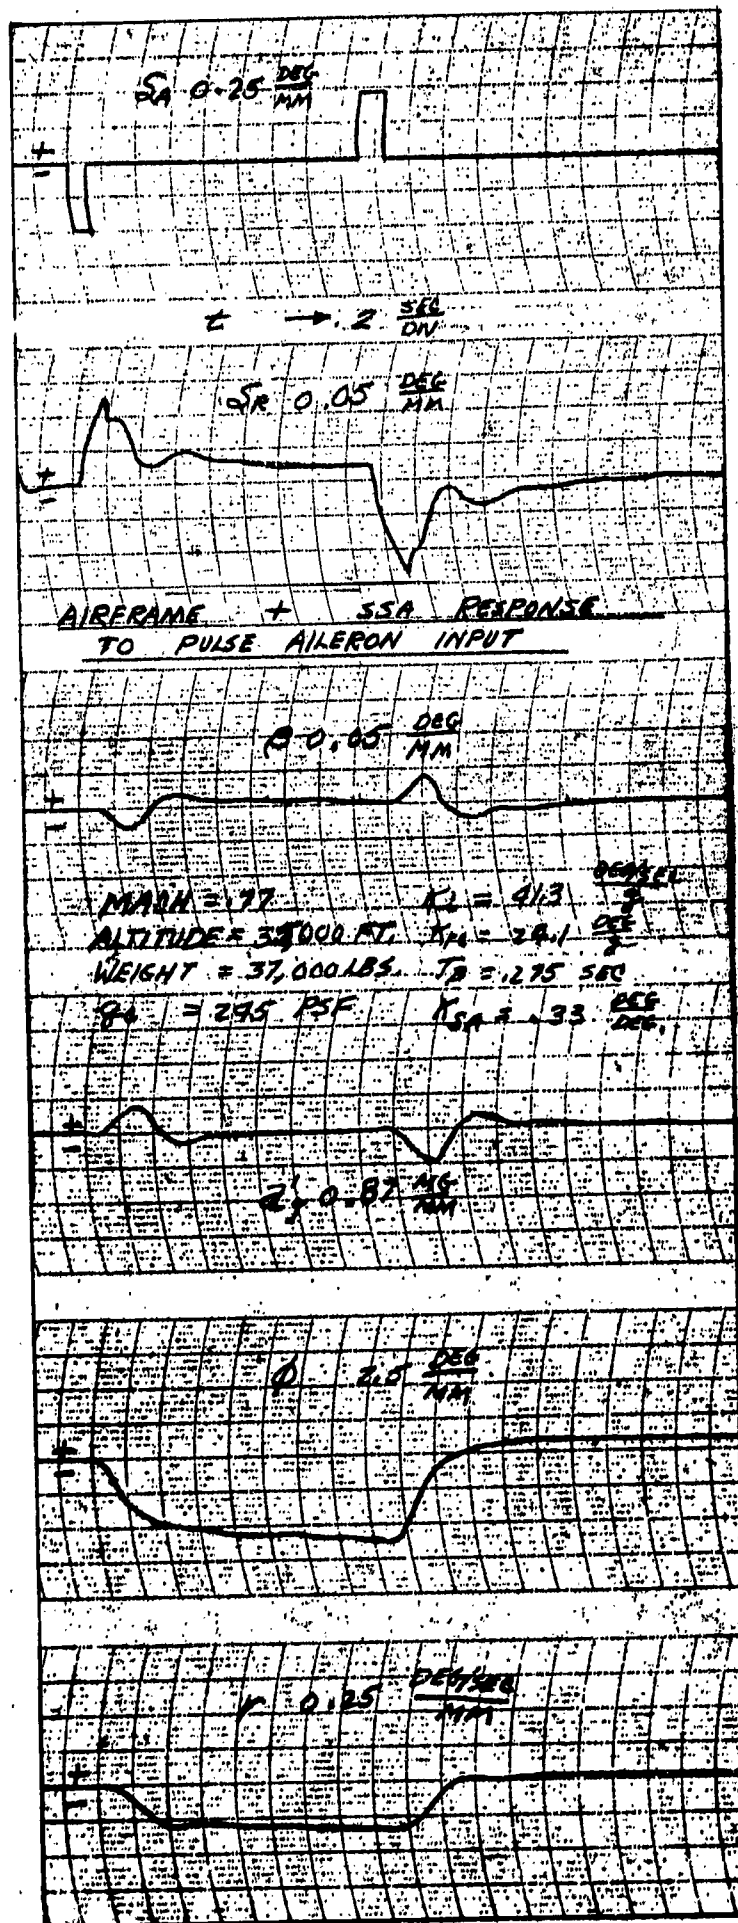 δA 0.25 DEG/MM
+
-
t → .2 SEC/DIV
δR 0.05 DEG/MM
+
-
AIRFRAME + SSA RESPONSE
TO PULSE AILERON INPUT
β 0.05 DEG/MM
+
-
MACH = .77
ALTITUDE = 35000 FT.
WEIGHT = 37,000 LBS. TB = .275 SEC
= 295 PSF KSA = .33 DEG/DEG.
+
-
0.87 MG/MM
ϕ 2.5 DEG/MM
+
-
r 0.25 DEG/SEC/MM
+
-